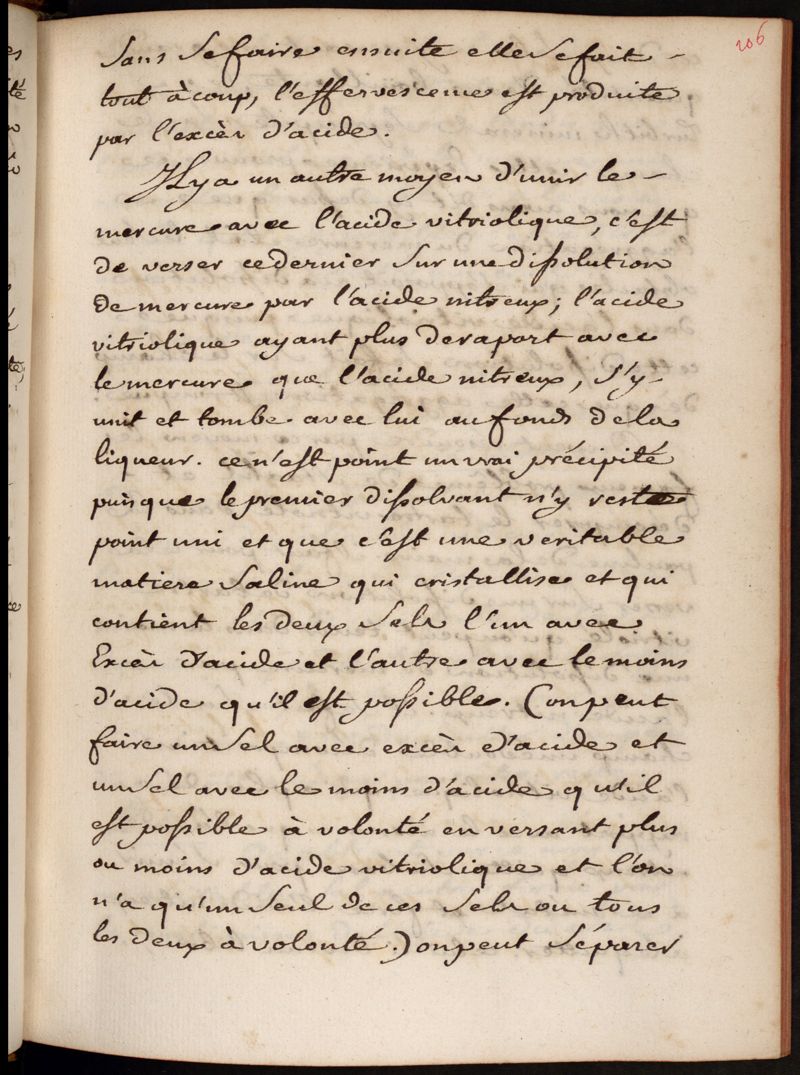 206
sans se faire ensuite elle se fait -
tout à coup, l'effervescence est produite
par l'excès d'acide.
Il y a un autre moyen d'unir le -
mercure avec l'acide vitriolique, c'est
de verser ce dernier sur une dissolution
de mercure par l'acide nitreux; l'acide
vitriolique ayant plus de raport avec
le mercure que l'acide nitreux, s'y
unit et tombe avec lui au fond de la
liqueur. ce n'est point un vrai précipité
puisque le premier dissolvant n'y reste
point uni et que c'est une veritable
matiere saline qui cristallise et qui
contient les deux sels l'un avec
Excès d'acide et l'autre avec le moins
d'acide qu'il est possible. (on peut
faire un sel avec excès d'acide et
un sel avec le moins d'acide qu'il
est possible à volonté en versant plus
ou moins d'acide vitriolique et l'on
n'a qu'un seul de ces sels ou tous
les deux à volonté.) on peut séparer